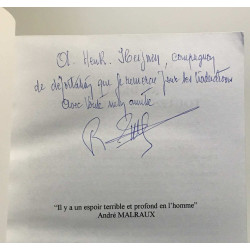 A Henk. , compagnon
de déportation que je remercie pour ses traductions
avec toute mon amitié
"Il y a un espoir terrible et profond en l'homme"
André MALRAUX